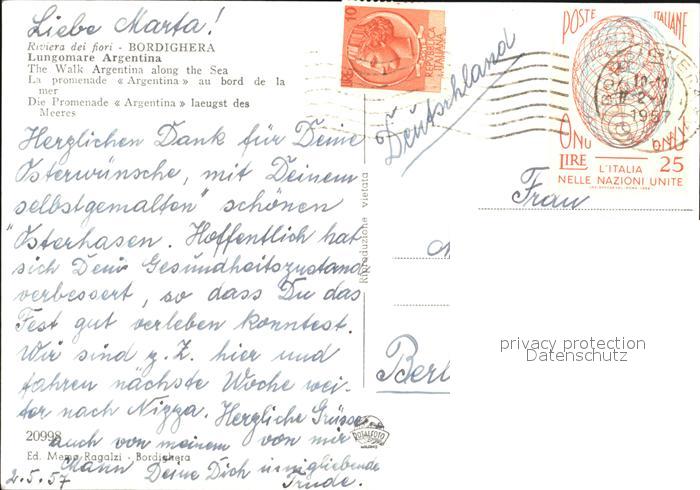 Liebe Marta!
Riviera dei fiori - BORDIGHERA
Lungomare Argentina
The Walk Argentina along the Sea
La promenade « Argentina » au bord de la
mer
Die Promenade « Argentina » laeugst des
Meeres
Herzlichen Dank für Deine
Osterwünsche, mit Deinem
"selbstgemalten" schönen
Osterhasen. Hoffentlich hat
sich Dein Gesundheitszustand
verbessert, so dass Du das
Fest gut verleben konntest.
Wir sind z. Z. hier und
fahren nächste Woche wei-
ter nach Nizza. Herzliche Grüsse
auch von meinem von mir
Mann Deine Dich innigliebende
Trude.
2.5.57
20998
Ed. Memo Ragalzi - Bordighera
Riproduzione vietata
ROTALFOTO
10
REPUBBLICA
ITALIANA
POSTE ITALIANE
10-11
2-V
1957
ONU
ONU
LIRE 25
L'ITALIA
NELLE NAZIONI UNITE
Deutschland
Frau
Berl
privacy protection
Datenschutz